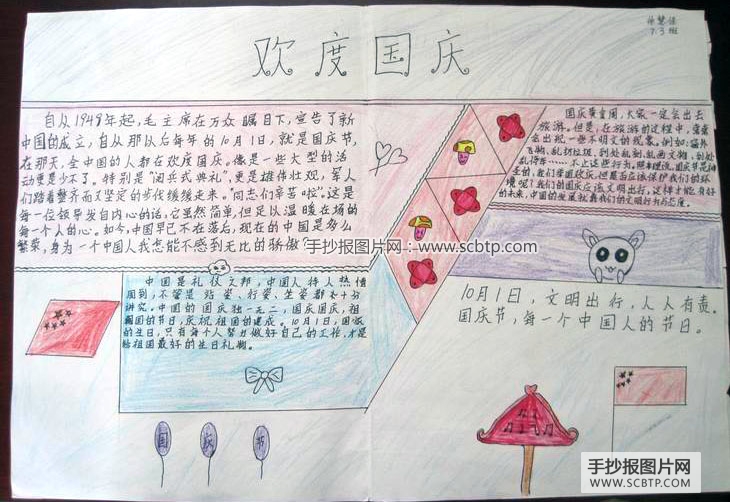 7.3班
欢度国庆
自从1949年起,毛主席在万众瞩目下,宣告了新
中国的成立,自从那以后每年的10月1日,就是国庆节,
在那天,全中国的人都在欢度国庆。像是一些大型的活
动更是少不了。特别是“阅兵式典礼”,更是雄伟壮观,军人
们踏着整齐而又坚定的步伐缓缓走来。“同志们辛苦啦”,这是
每一位领导发自内心的话,它虽然简单,但足以温暖在场的
每一个人的心。如今,中国早已不在落后,现在的中国是多么
繁荣,身为一个中国人我怎能不感到无比的骄傲?
国庆黄金周,大家一定会出去
旅游。但是,在旅游的过程中,常常
会出现一些不明文的现象。例如:窗外
飞物,乱扔垃圾
手抄报图片网:www.scbtp.com
中国是礼仪文邦,中国人待人热情
周到,不管是站姿、行姿、坐姿都十分
讲究。中国的国庆独一无二,国庆国庆,祖
国的节日,庆祝祖国的建成。10月1日,国家
的生日,只有每个人努力做好自己的工作,才是
给祖国最好的生日礼物。
10月1日,文明出行,人人有责。
国庆节,每一个中国人的节日。
国庆节
手抄报图片网
WWW.SCBTP.COM